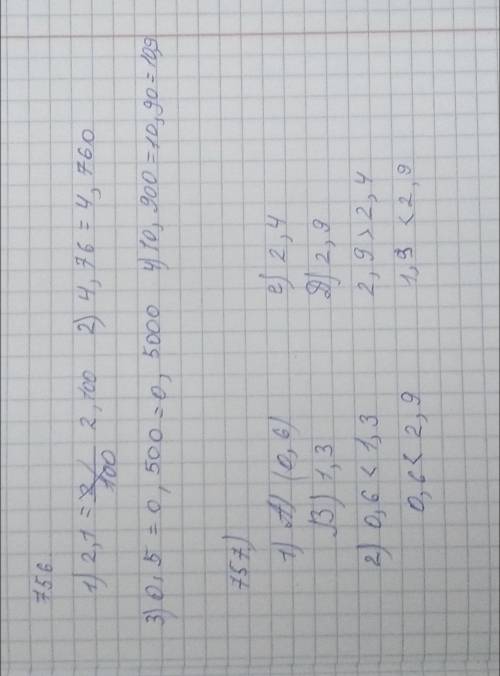 756
1) 2,1 = 2,100 2) 4,76 = 4,760
3) 0,5 = 0,500 = 0,5000 4) 10,900 = 10,90 = 10,9
757)
1) A) (0,6) C) 2,4
B) 1,3 D) 2,9
2) 0,6 < 1,3 2,9 > 2,4
0,6 < 2,9 1,3 < 2,9